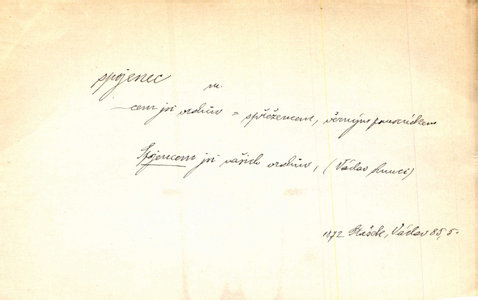 spojenec
m.
—cem jsi vrahův = spřežencem, věrným pomocníkem
Spojencem jsi vašich vrahův, (Václav
1872 Vlček, Václav 85, 5.